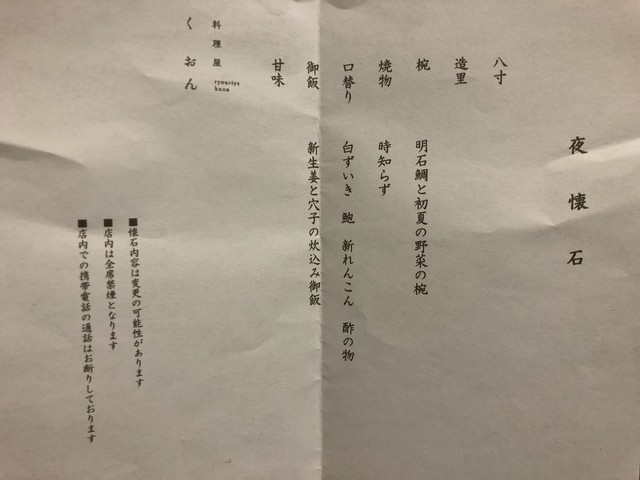 夜懐石
八寸
造里
椀　明石鯛と初夏の野菜の椀
焼物　時知らず
口替り　白ずいき　鮑　新れんこん　酢の物
御飯　新生姜と穴子の炊込み御飯
甘味
料理屋
ryouriya
kuon
くおん
■懐石内容は変更の可能性があります
■店内は全席禁煙となります
■店内での携帯電話の通話はお断りしております